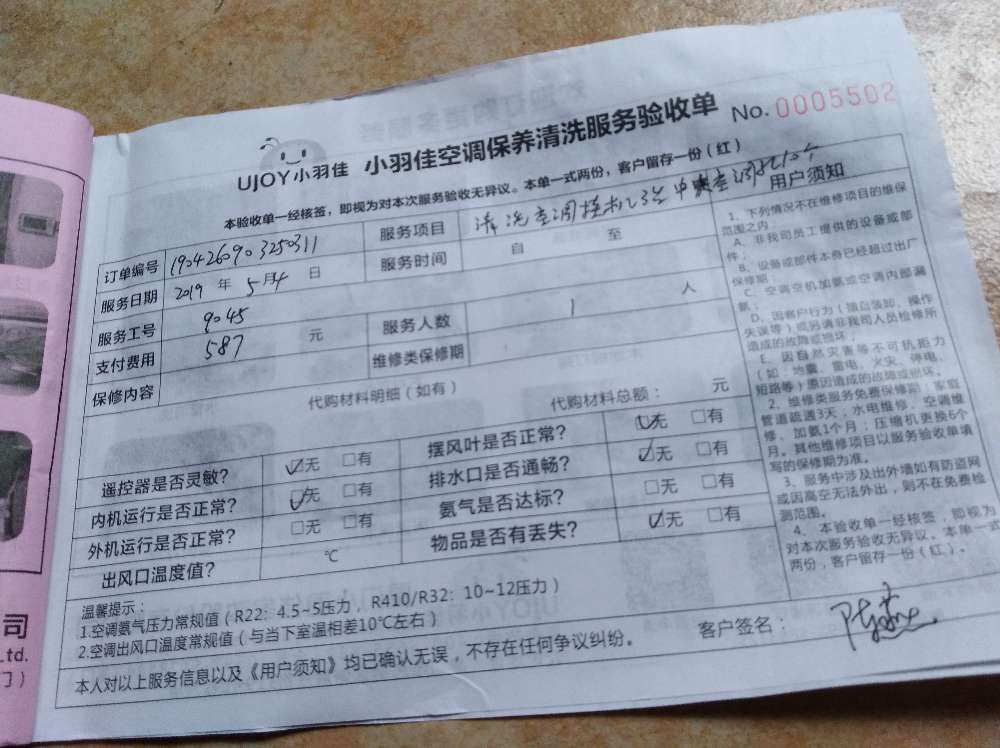 UJOY小羽佳 小羽佳空调保养清洗服务验收单 No. 0005502
本验收单一经核签，即视为对本次服务验收无异议。本单一式两份，客户留存一份（红）
订单编号 190426903250311 服务项目 清洗空调挂机3台中央空调
服务日期 2019 年 5月4 日 服务时间 自 至
服务工号 9045 服务人数 1 人
支付费用 587 元 维修类保修期
保修内容
代购材料明细（如有） 代购材料总额： 元
遥控器是否灵敏？ ☑无 □有 摆风叶是否正常？ ☑无 □有
内机运行是否正常？ ☑无 □有 排水口是否通畅？ ☑无 □有
外机运行是否正常？ □无 □有 氨气是否达标？ □无 □有
出风口温度值？ ℃ 物品是否有丢失？ ☑无 □有
温馨提示：
1.空调氨气压力常规值（R22：4.5~5压力， R410/R32：10~12压力）
2.空调出风口温度常规值（与当下室温相差10℃左右）
本人对以上服务信息以及《用户须知》均已确认无误，不存在任何争议纠纷。
客户签名：
用户须知
1、下列情况不在维修项目的维保
范围之内：
A、非我司员工提供的设备或部
件；
B、设备或部件本身已经超过出厂
保修期；
C、空调空机加氨或空调内部漏
氨；
D、因客户行为（擅自装卸、操作
失误等）或另请非我司人员检修所
造成的故障或损坏；
E、因自然灾害等不可抗拒力
（如：地震、雷电、火灾、停电、
短路等）原因造成的故障或损坏。
2、维修类服务免费保修期：家庭
管道疏通3天；水电维修、空调维
修、加氨1个月；压缩机更换6个
月。其他维修项目以服务验收单填
写的保修期为准。
3、服务中涉及出外墙如有防盗网
或因高空无法外出，则不在免费检
测范围。
4、本验收单一经核签，即视为
对本次服务验收无异议。本单一式
两份，客户留存一份（红）。
司
Ltd.
门）